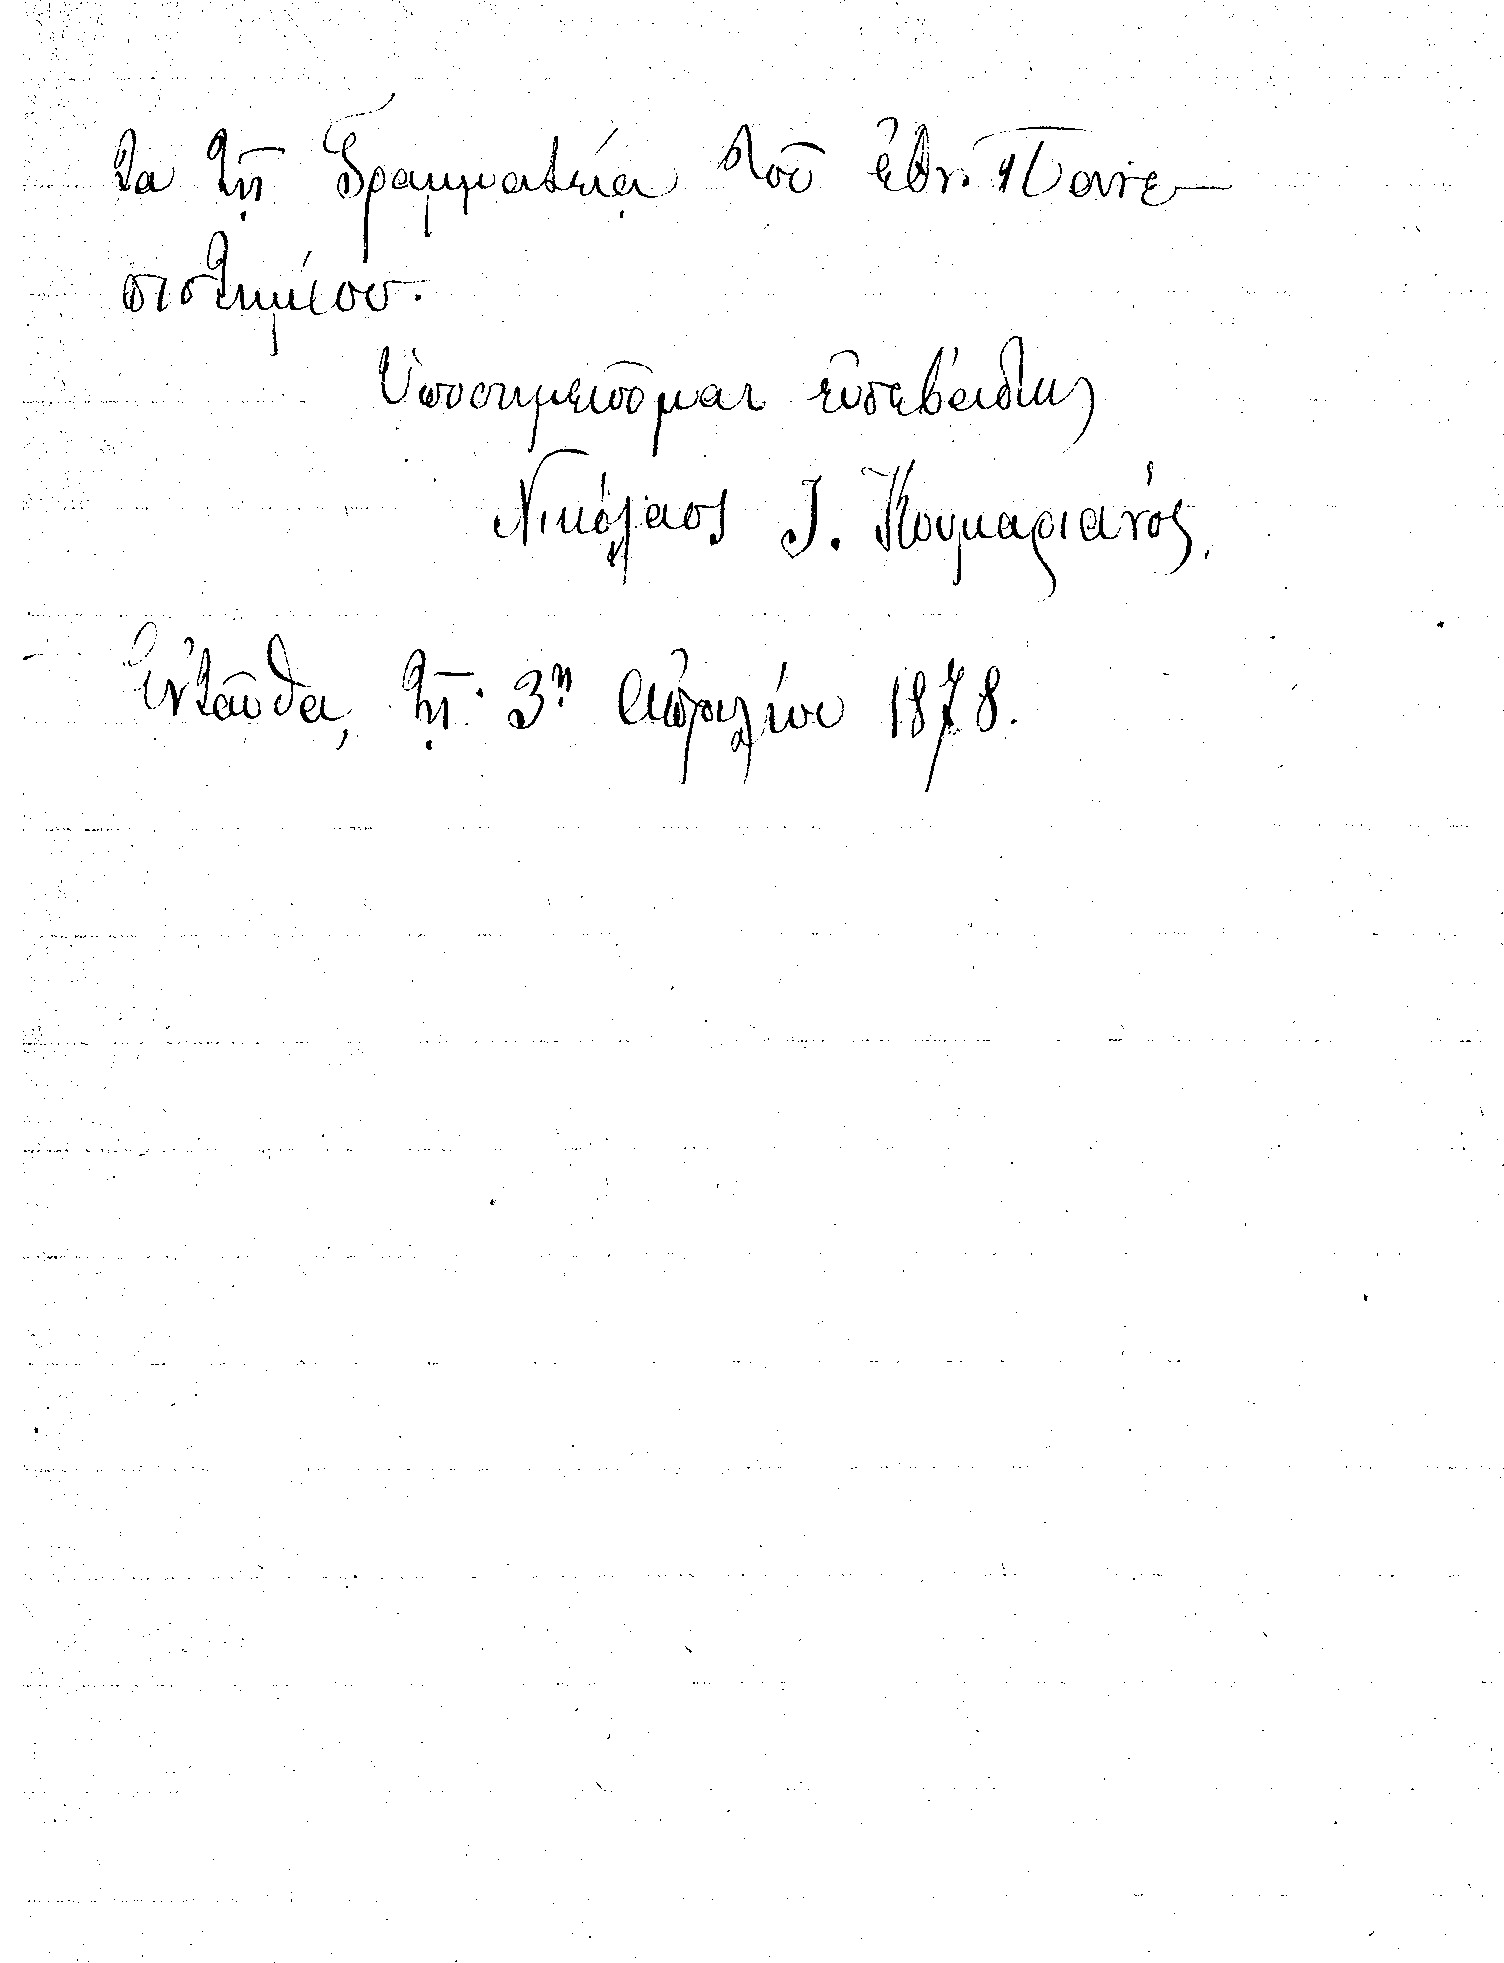 τα τῇ Γραμματείᾳ τοῦ ἐθν. Πανε-
πιστημίου.
Ὑποσημειοῦμαι εὐσεβάστως
Νικόλαος Ι. Κουμαριανός.
Ἐνταῦθα, τῇ 3ῃ Ἀπριλίου 1878.